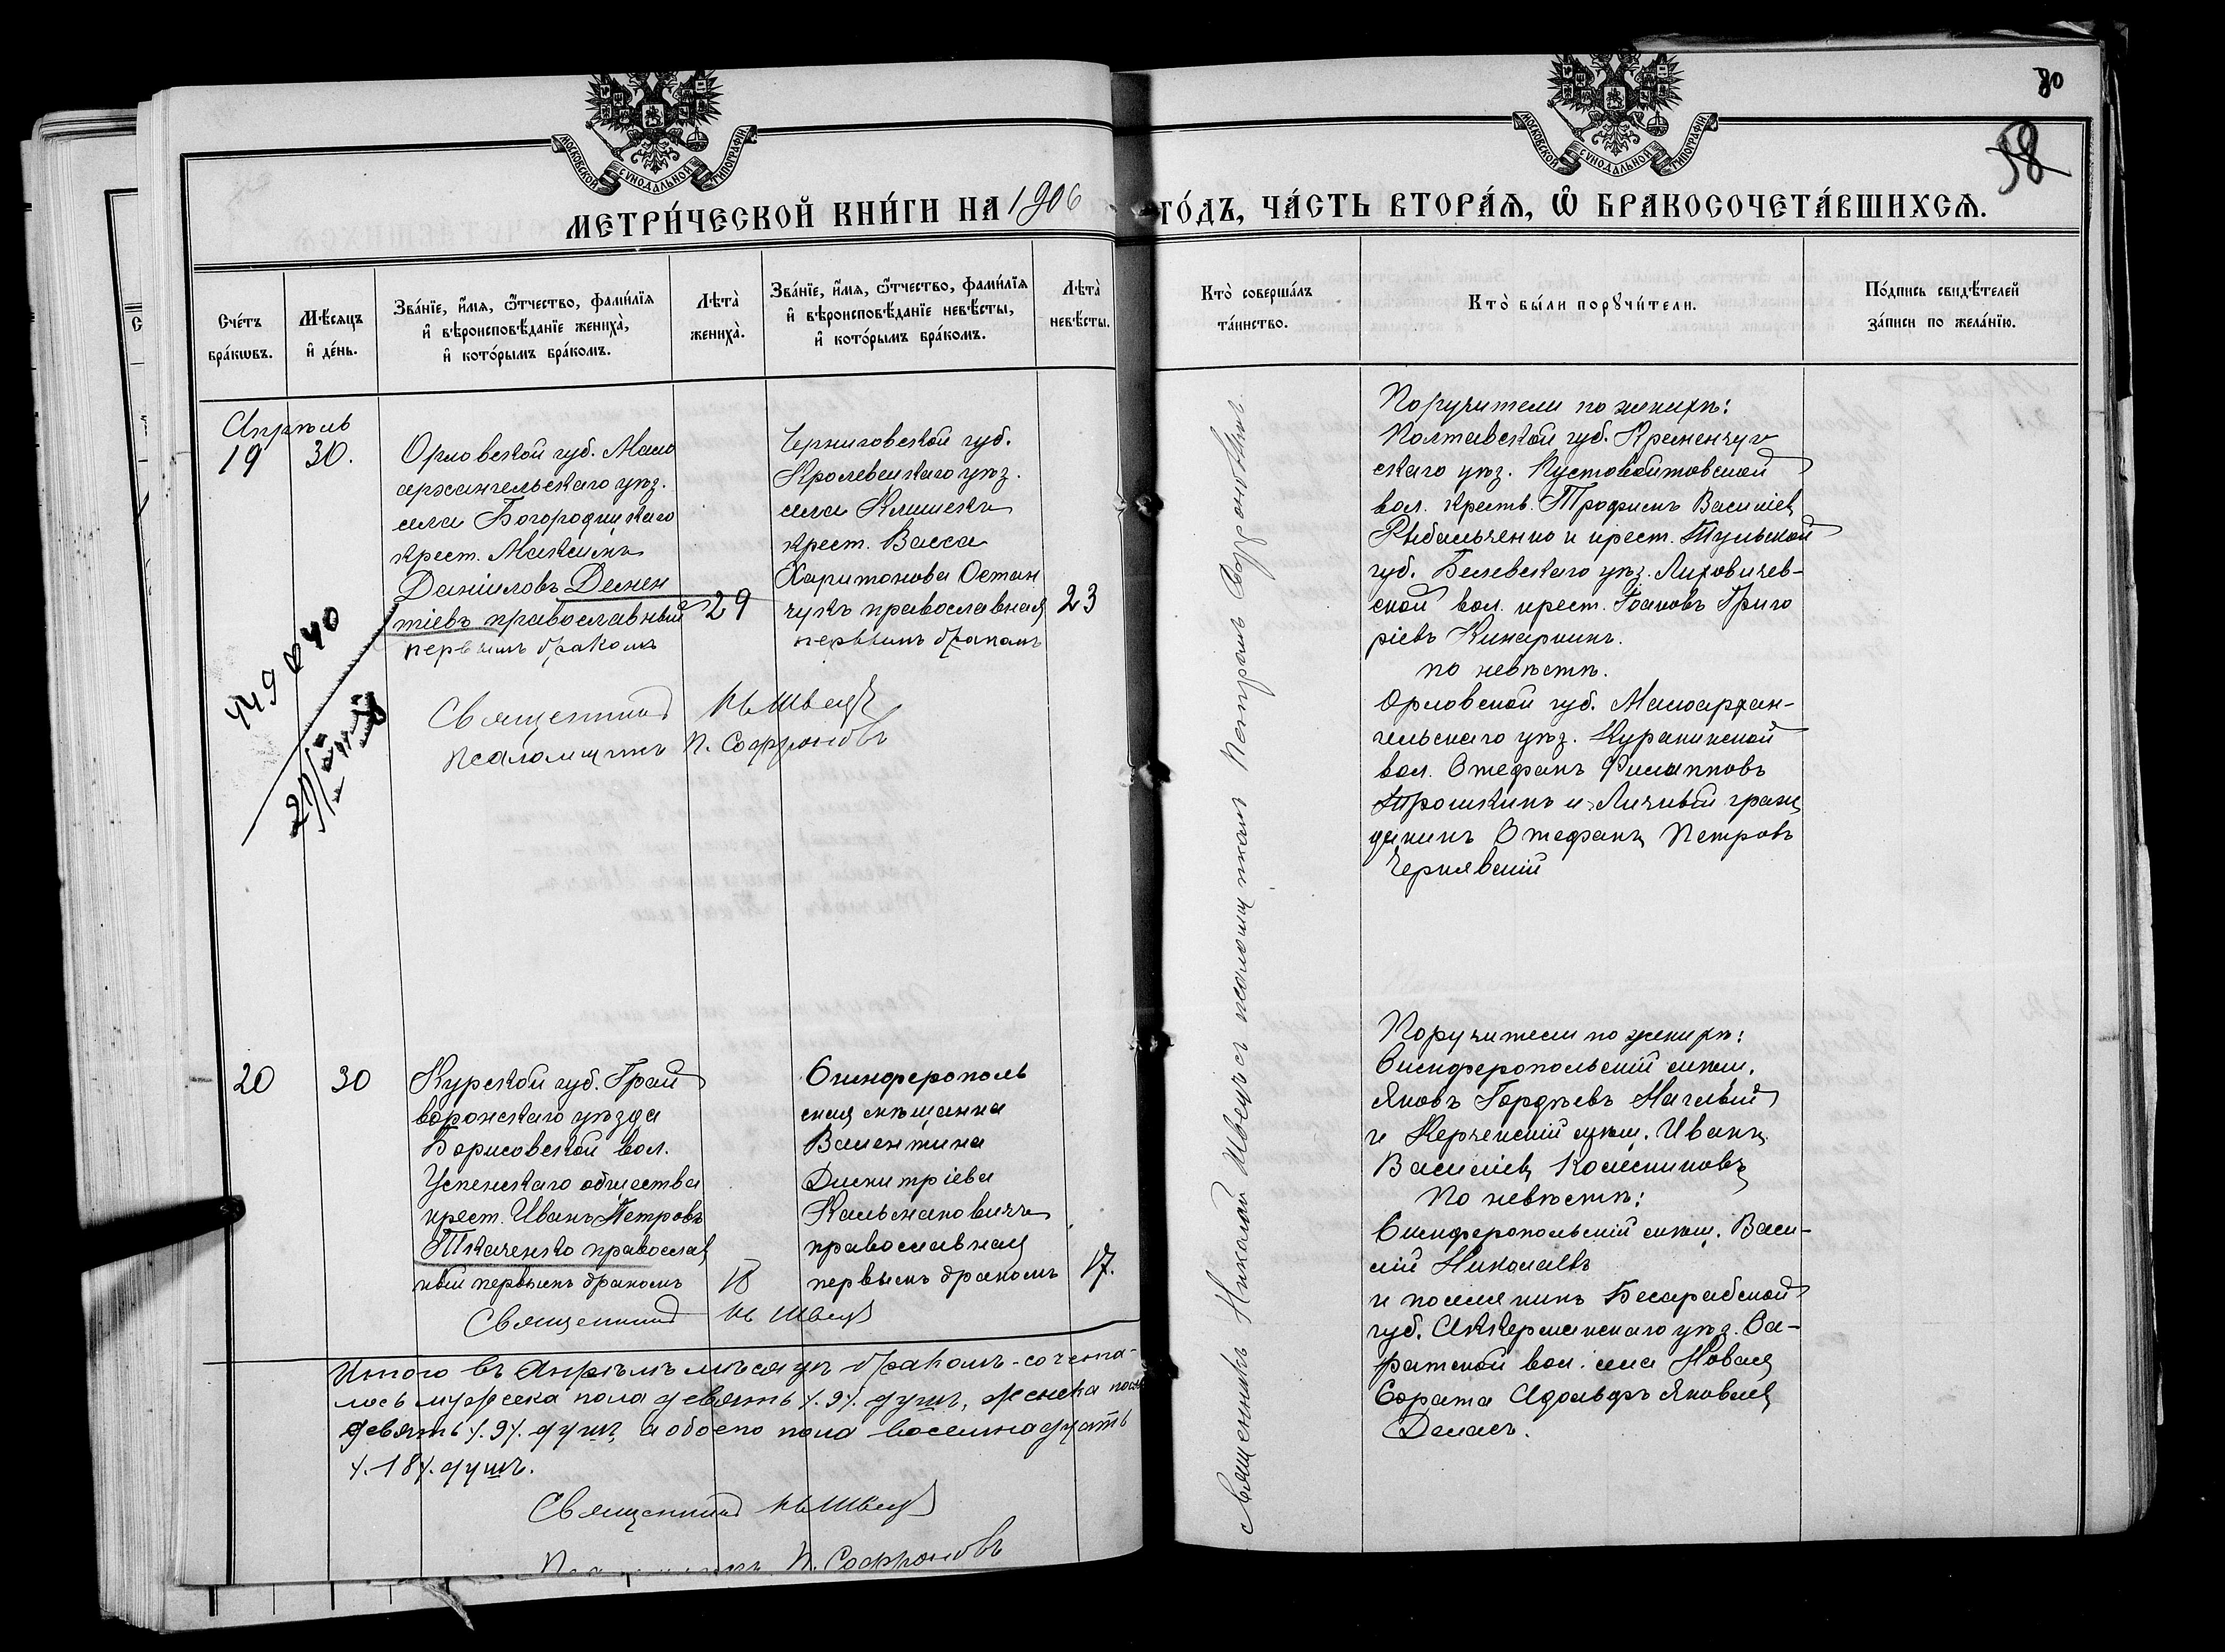 80
58
МОСКОВСКОЙ СУНОДАЛЬНОЙ ТИПОГРАФІИ
МОСКОВСКОЙ СУНОДАЛЬНОЙ ТИПОГРАФІИ
МЕТРИ́ЧЕСКОЙ КНИ́ГИ НА 1906 ГО́ДЪ, ЧА́СТЬ ВТОРА́Я, Ѽ БРАКОСОЧЕТА́ВШИХСЯ.
Сче́тъ
бра́кωвъ.
Мѣ́сяцъ
и҆ де́нь.
Зва́нїе, и҆́мя, ѻ҆́тчество, фами́лїя
и҆ вѣроисповѣ́данїе жениха̀,
и҆ кото́рымъ бра́комъ.
Лѣта̀
жениха̀.
Зва́нїе, и҆́мя, ѻ҆́тчество, фами́лїя
и҆ вѣроисповѣ́данїе невѣ́сты,
и҆ кото́рымъ бра́комъ.
Лѣта̀
невѣ́сты.
Кто̀ соверша́лъ
та́инство.
Кто̀ бы́ли порꙋчи́тели.
По́дпись свидѣ́телей
за́писи по жела́нїю.
Апрѣль
19
30.
Орловской губ. Мало
архангельскаго уѣз.
села Богородицкаго
крест. Максимъ
Даніиловъ Демен
тіевъ православный
первымъ бракомъ
29
Черниговской губ.
Кролевецкаго уѣз.
села Клишекъ
крест. Васса
Харитонова Остан
чукъ православная
первымъ бракомъ
23
Священникъ Н Швецъ
Псаломщикъ П. Софроновъ
449 40
Поручители по женихѣ:
Полтавской губ. Кременчуг
скаго уѣз. Пустовойтовской
вол. крестъ. Трофимъ Василіев
Рыбальченко и крест. Тульской
губ. Белевскаго уѣз. Лиховичев-
ской вол. крест. Іоаковъ Григо
ріевъ
по невѣстѣ.
Орловской губ. Малоархан-
гельскаго уѣз. Куракинской
вол. Стефанъ Филипповъ
Трошкинъ и Личный граж
данинъ Стефанъ Петровъ
Чернявскій
Священникъ Николай Швецъ съ псаломщикомъ Петромъ Софроновымъ.
20
30
Курской губ. Грай
воронскаго уѣзда
Борисовской вол.
Успенскаго общества
крест. Иванъ Петровъ
Ткаченко православ
ный первымъ бракомъ
18
Симферополь
ская мѣщанка
Валентина
Димитріева
Кальмановичъ
православная
первымъ бракомъ
17.
Священникъ Н Швецъ
Поручители по женихѣ:
Симферопольскій мѣщ.
Яковъ Гордѣевъ Наглый
и Керченскій мѣщ. Иванъ
Василіевъ Колесниковъ
По невѣстѣ:
Симферопольскій мѣщ. Васи-
лій Николаевъ
и поселянинъ Бесарабской
губ. Аккерманскаго уѣз. Са-
ратской вол. села Новая
Сарата Адольфъ Яковлев
Итого въ Апрѣлѣ мѣсяцѣ бракомъ сочета-
лось мужеска пола девять /.9/. душъ, женска пола
девять /.9/. душъ, а обоего пола восемнадцать
/.18/. душъ.
Священникъ Н Швецъ
П. Софроновъ